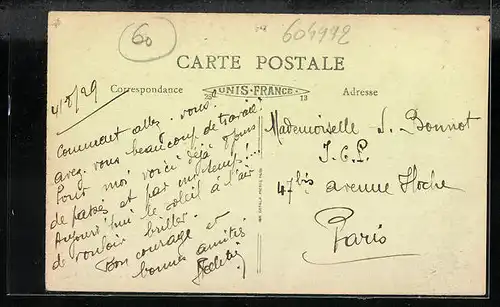 60
604992
CARTE POSTALE
Correspondance
UNIS-FRANCE
25
13
Adresse
4/8/29
Comment allez-vous?
avez-vous beaucoup de travail?
Pour moi, voici déjà 8 jours
de passés et par un temps!...
Aujourd'hui le soleil à l'air
de vouloir briller.
Bon courage et
bonnes amitiés
Mademoiselle S. Bonnot
I.C.P.
47 bis avenue Hoche
Paris